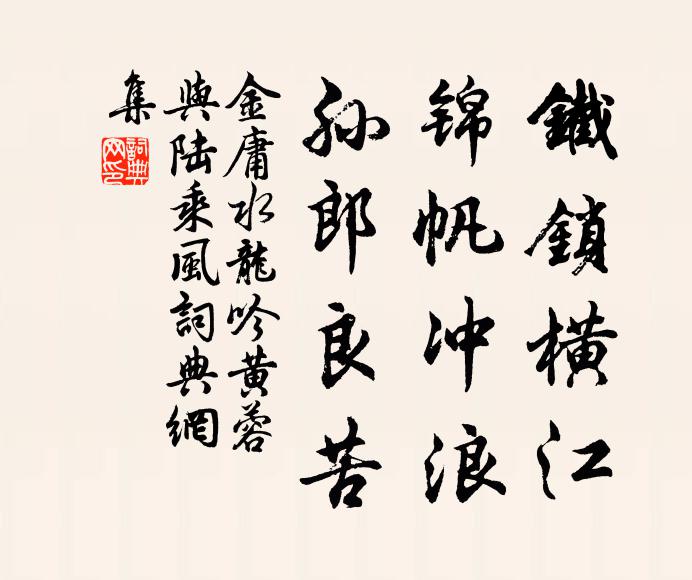 鐵鎖横江
锦帆冲浪
孙郎良苦
金庸水龍吟黄蓉
與陆乘風詞典網
集
詞典
网印